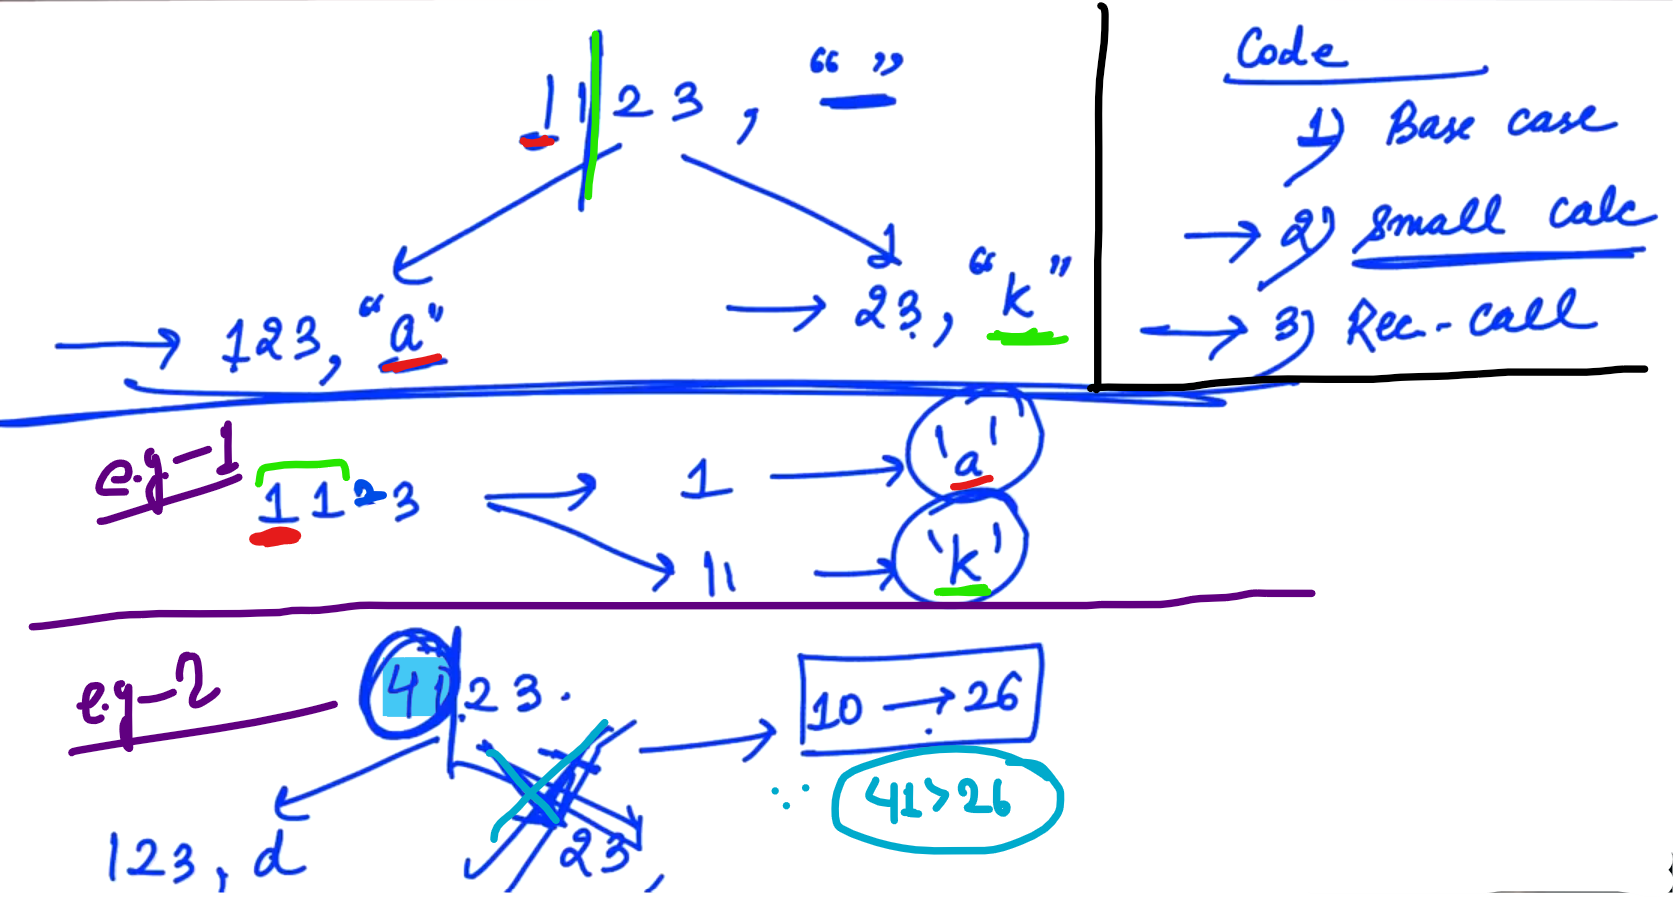 1123, “ ”
123, “a”
1
→ 23, “k”
Code
1) Base case
→ 2) Small calc
→ 3) Rec-call
e.g-1
1123
1 → 'a'
11 → 'k'
e.g-2
4123.
10 → 26
∵ 41>26
123, d
23,